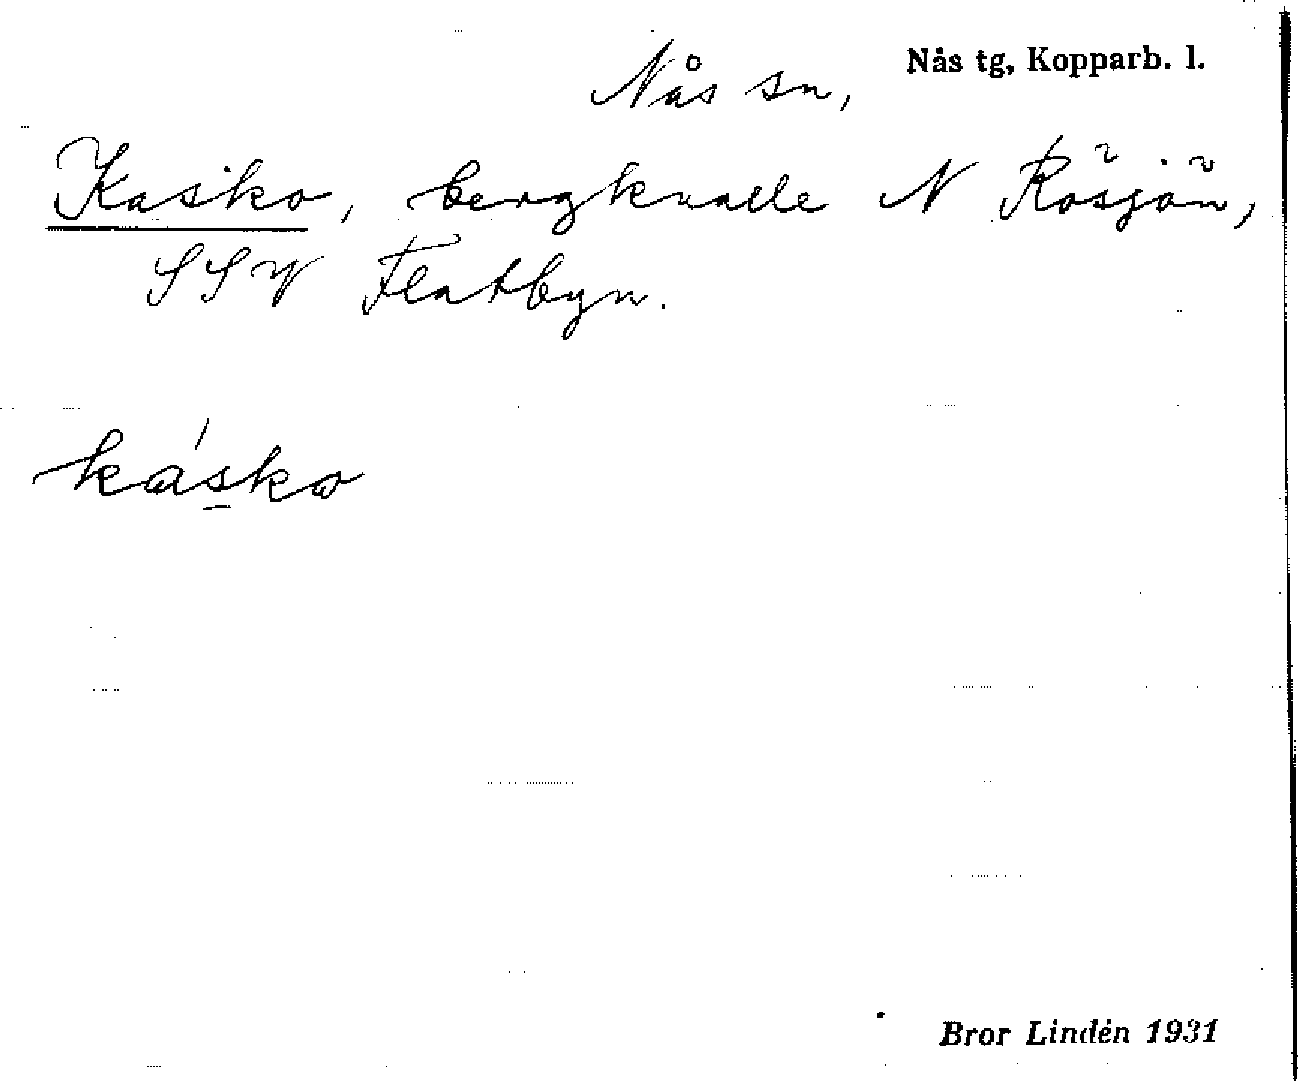 Nås tg, Kopparb. l.
Nås sn,
Kasko, bergknalle N Rösjön,
SSV Flatbyn.
kásko
Bror Lindén 1931